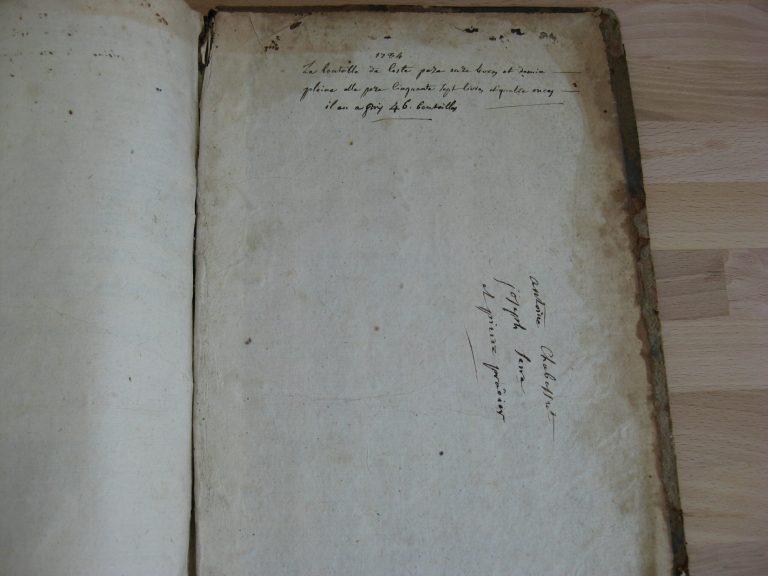 1784
La boutelle de Coste peze onze livres et demie
pleine elle peze Cinquante Sept livres et quatre onces
il en a prix 46. bouteilles
antoine Chabossut
joseph Serre
et pierre pradier